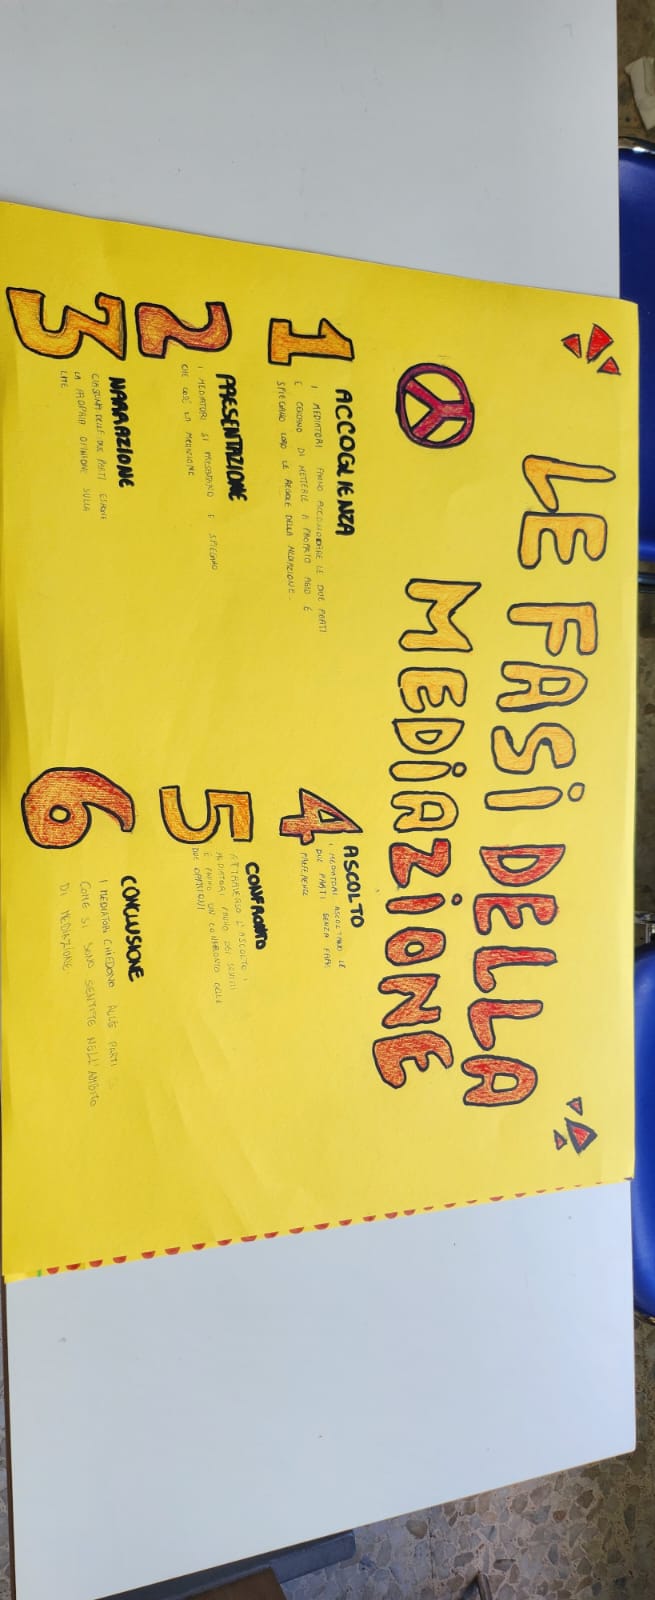 LE FASI DELLA
MEDIAZIONE
1
ACCOGLIENZA
I MEDIATORI FANNO ACCOMODARE LE DUE PARTI
E CERCANO DI METTERLE A PROPRIO AGIO E
SPIEGANO LORO LE REGOLE DELLA MEDIAZIONE.
2
PRESENTAZIONE
I MEDIATORI SI PRESENTANO E SPIEGANO
CHE COS'È LA MEDIAZIONE
3
NARRAZIONE
CIASCUNA DELLE DUE PARTI ESPONE
LA PROPRIA OPINIONE SULLA
LITE
4
ASCOLTO
I MEDIATORI ASCOLTANO LE
DUE PARTI SENZA FARE
PREFERENZE
5
CONFRONTO
ATTRAVERSO L'ASCOLTO I
MEDIATORI FANNO DEI
E FANNO UN CONFRONTO DELLE
DUE OPINIONI
6
CONCLUSIONE
I MEDIATORI CHIEDONO ALLE PARTI
COME SI SONO SENTITE NELL'AMBITO
DI MEDIAZIONE